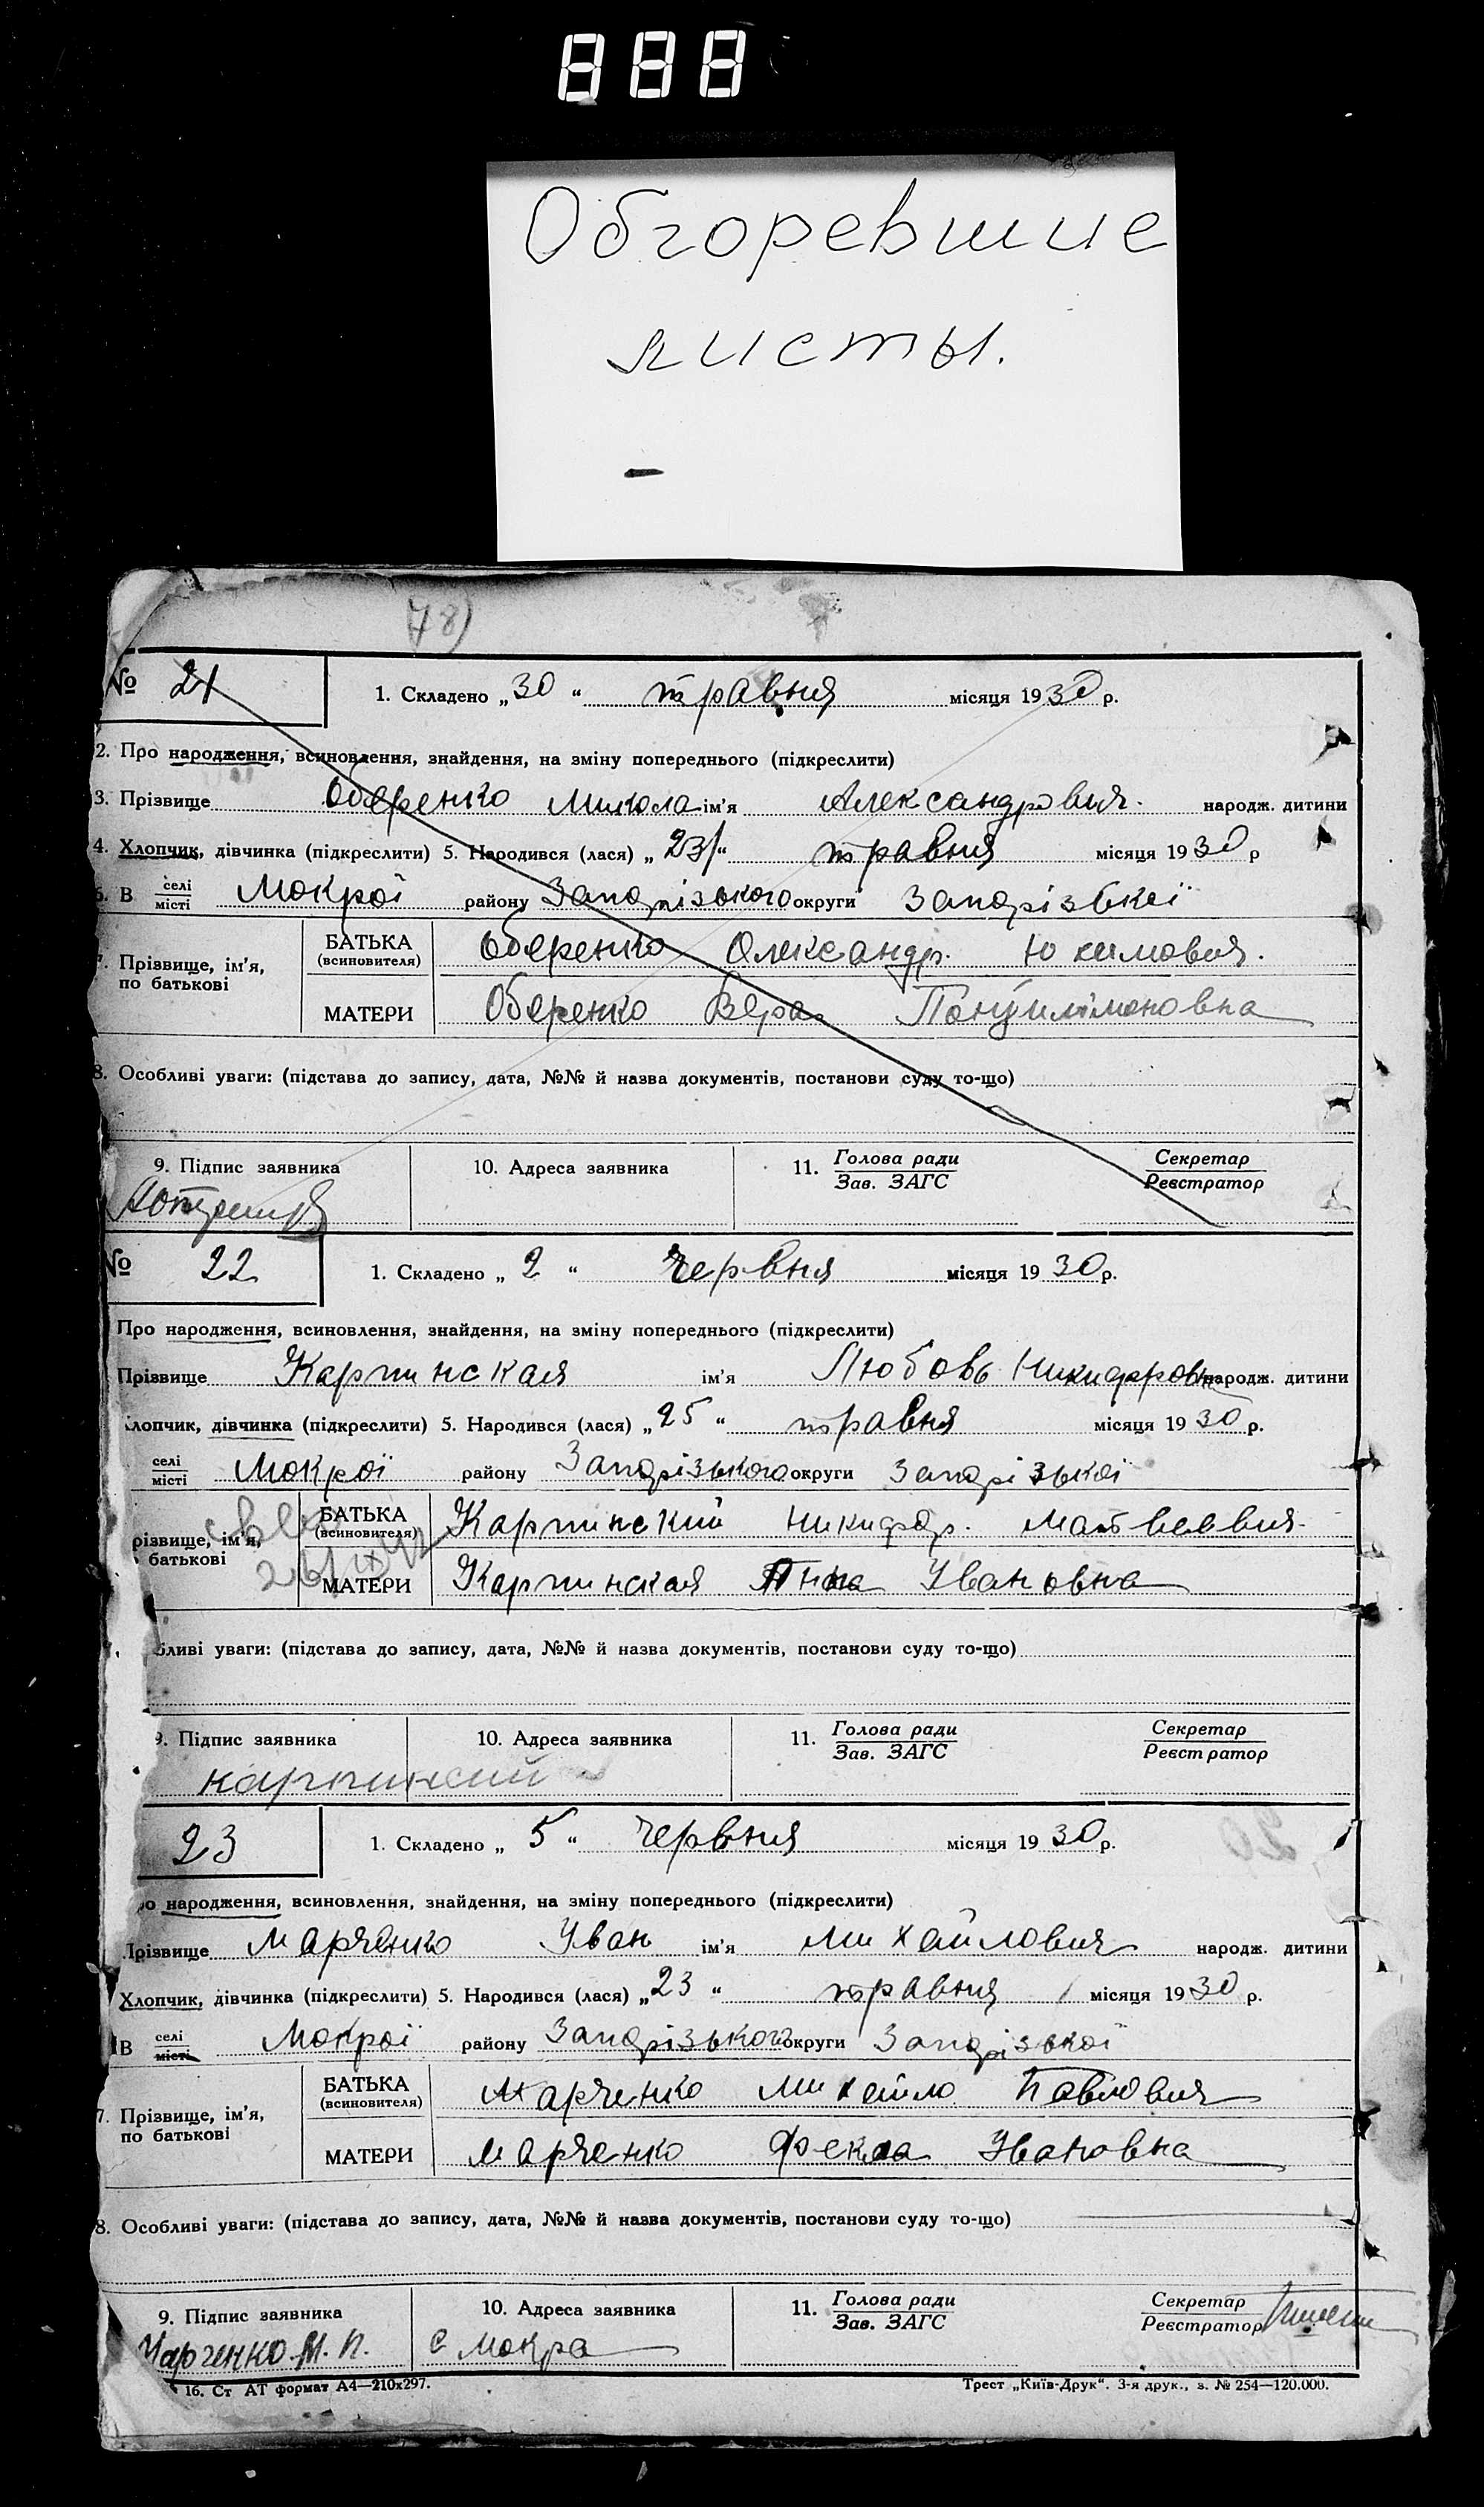 888
Обгоревшие
листы.
78)
№ 21 1. Складено „30“ травня місяця 1930 р.
2. Про народження, всиновлення, знайдення, на зміну попереднього (підкреслити)
3. Прізвище Оберенко Микола ім'я Александрович. народж. дитини
4. Хлопчик, дівчинка (підкреслити) 5. Народився (лася) „23“ травня місяця 1930 р
6. В селі/місті Мокрої району Запорізького округи Запорізької
7. Прізвище, ім'я, по батькові БАТЬКА (всиновителя) Оберенко Олександр. Юхимович.
МАТЕРИ Оберенко Вера
8. Особливі уваги: (підстава до запису, дата, №№ й назва документів, постанови суду то-що)
9. Підпис заявника 10. Адреса заявника 11. Голова ради/Зав. ЗАГС Секретар/Реєстратор
№ 22 1. Складено „2“ червня місяця 1930 р.
Про народження, всиновлення, знайдення, на зміну попереднього (підкреслити)
Прізвище Карпинская ім'я Любовь Никифровна народж. дитини
лопчик, дівчинка (підкреслити) 5. Народився (лася) „25“ травня місяця 1930 р.
селі/місті Мокрої району Запорізького округи Запорізької
різвище, ім'я, батькові БАТЬКА (всиновителя) Карпинский Никифор. Матвеевич.
МАТЕРИ Карпинская Анна Ивановна
бливі уваги: (підстава до запису, дата, №№ й назва документів, постанови суду то-що)
9. Підпис заявника 10. Адреса заявника 11. Голова ради/Зав. ЗАГС Секретар/Реєстратор
карпинский
23 1. Складено „5“ червня місяця 1930 р.
ро народження, всиновлення, знайдення, на зміну попереднього (підкреслити)
Прізвище Марченко Иван ім'я Михайлович народж. дитини
Хлопчик, дівчинка (підкреслити) 5. Народився (лася) „23“ травня місяця 1930 р.
В селі/місті Мокрої району Запорізького округи Запорізької
7. Прізвище, ім'я, по батькові БАТЬКА (всиновителя) Марченко Михайло Павлович
МАТЕРИ Марченко Фекла Ивановна
8. Особливі уваги: (підстава до запису, дата, №№ й назва документів, постанови суду то-що)
9. Підпис заявника 10. Адреса заявника 11. Голова ради/Зав. ЗАГС Секретар/Реєстратор
Марченко М. П. с Мокра
16. Ст АТ формат А4—210х297. Трест „Київ-Друк“. 3-я друк., з. № 254—120.000.